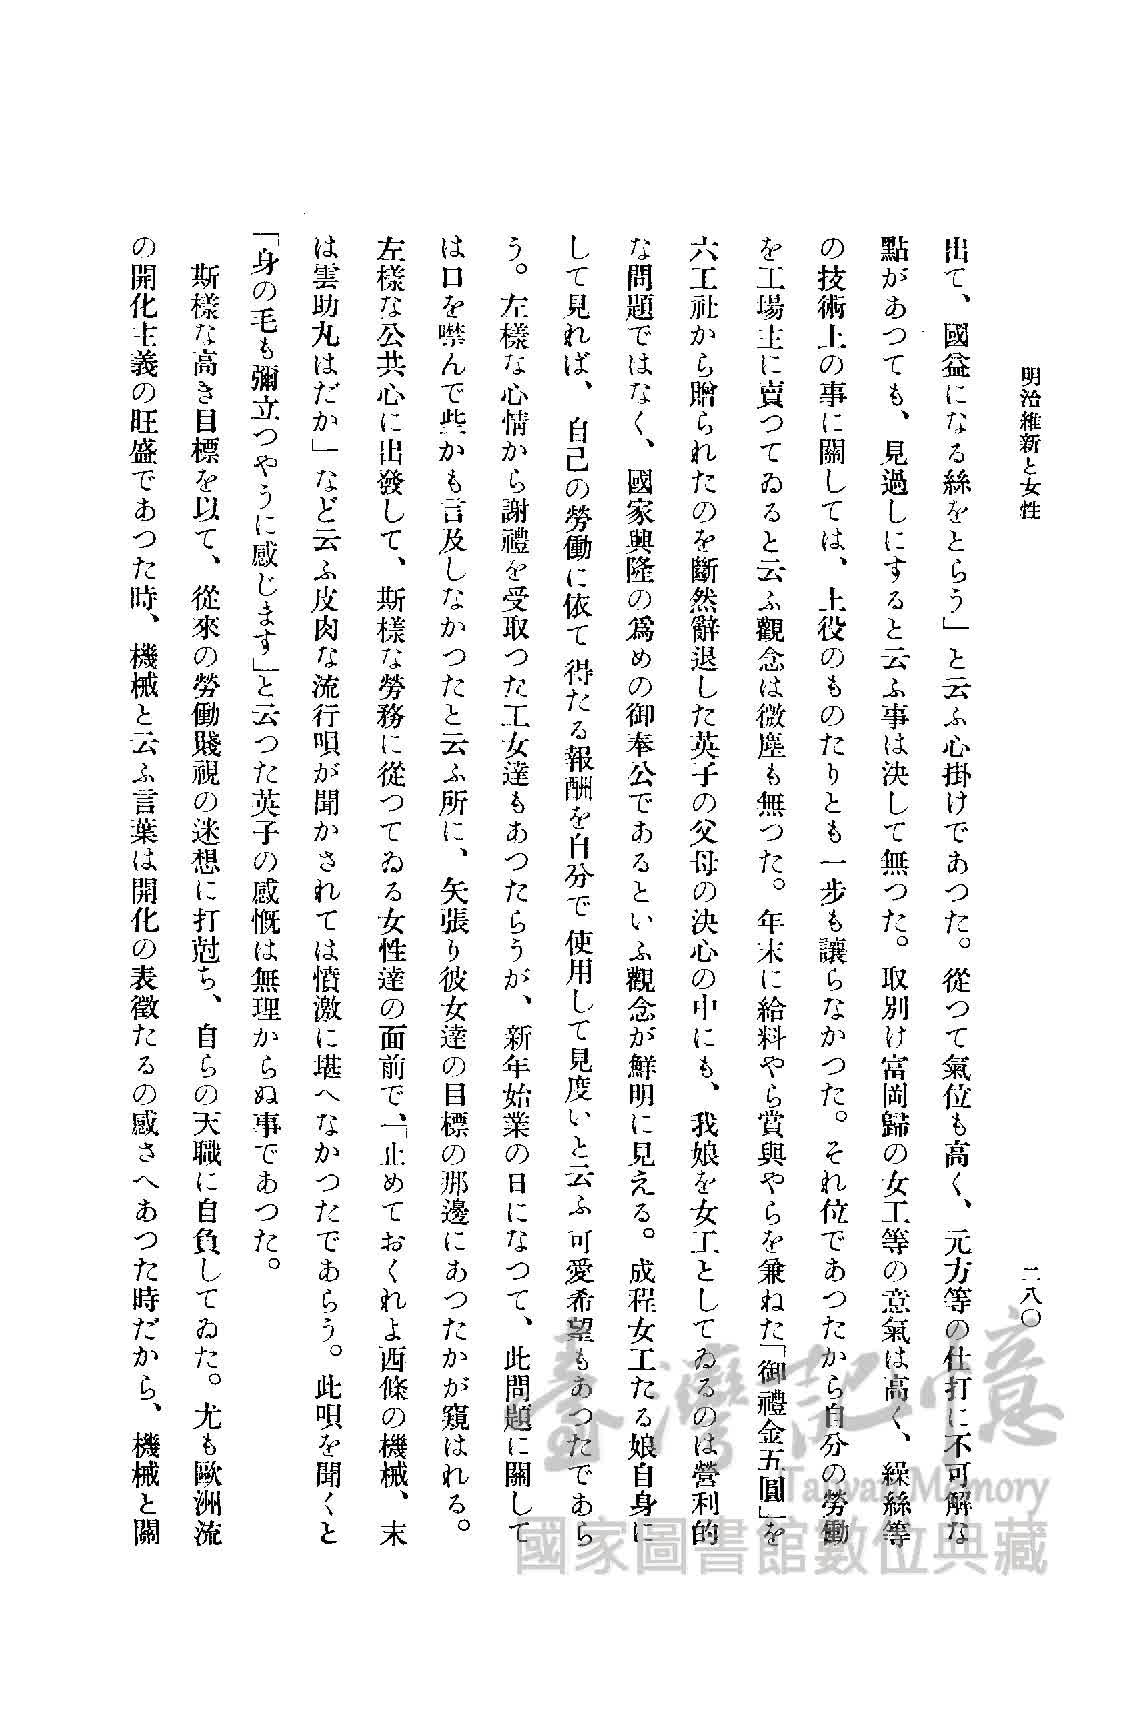 明治維新と女性
二八〇
出て、國益になる絲をとらう」と云ふ心掛けであつた。從つて氣位も高く、元方等の仕打に不可解な
點があつても、見過しにすると云ふ事は決して無つた。取別け富岡歸の女工等の意氣は高く、繰絲等
の技術上の事に關しては、上役のものたりとも一歩も讓らなかつた。それ位であつたから自分の勞働
を工場主に賣つてゐると云ふ觀念は微塵も無つた。年末に給料やら賞與やらを兼ねた「御禮金五圓」を
六工社から贈られたのを斷然辭退した英子の父母の決心の中にも、我娘を女工としてゐるのは營利的
な問題ではなく、國家興隆の爲めの御奉公であるといふ觀念が鮮明に見える。成程女工たる娘自身に
して見れば、自己の勞働に依て得たる報酬を自分で使用して見度いと云ふ可愛希望もあつたであら
う。左樣な心情から謝禮を受取つた工女達もあつたらうが、新年始業の日になつて、此問題に關して
は口を噤んで些かも言及しなかつたと云ふ所に、矢張り彼女達の目標の那邊にあつたかが窺はれる。
左樣な公共心に出發して、斯樣な勞務に從つてゐる女性達の面前で、「止めておくれよ西條の機械、末
は雲助丸はだか」など云ふ皮肉な流行唄が聞かされては憤激に堪へなかつたであらう。此唄を聞くと
「身の毛も彌立つやうに感じます」と云つた英子の感慨は無理からぬ事であつた。
斯樣な高き目標を以て、從來の勞働賤視の迷想に打尅ち、自らの天職に自負してゐた。尤も歐洲流
の開化主義の旺盛であつた時、機械と云ふ言葉は開化の表徴たるの感さへあつた時だから、機械と關
臺灣記憶
Taiwan Memory
國家圖書館數位典藏